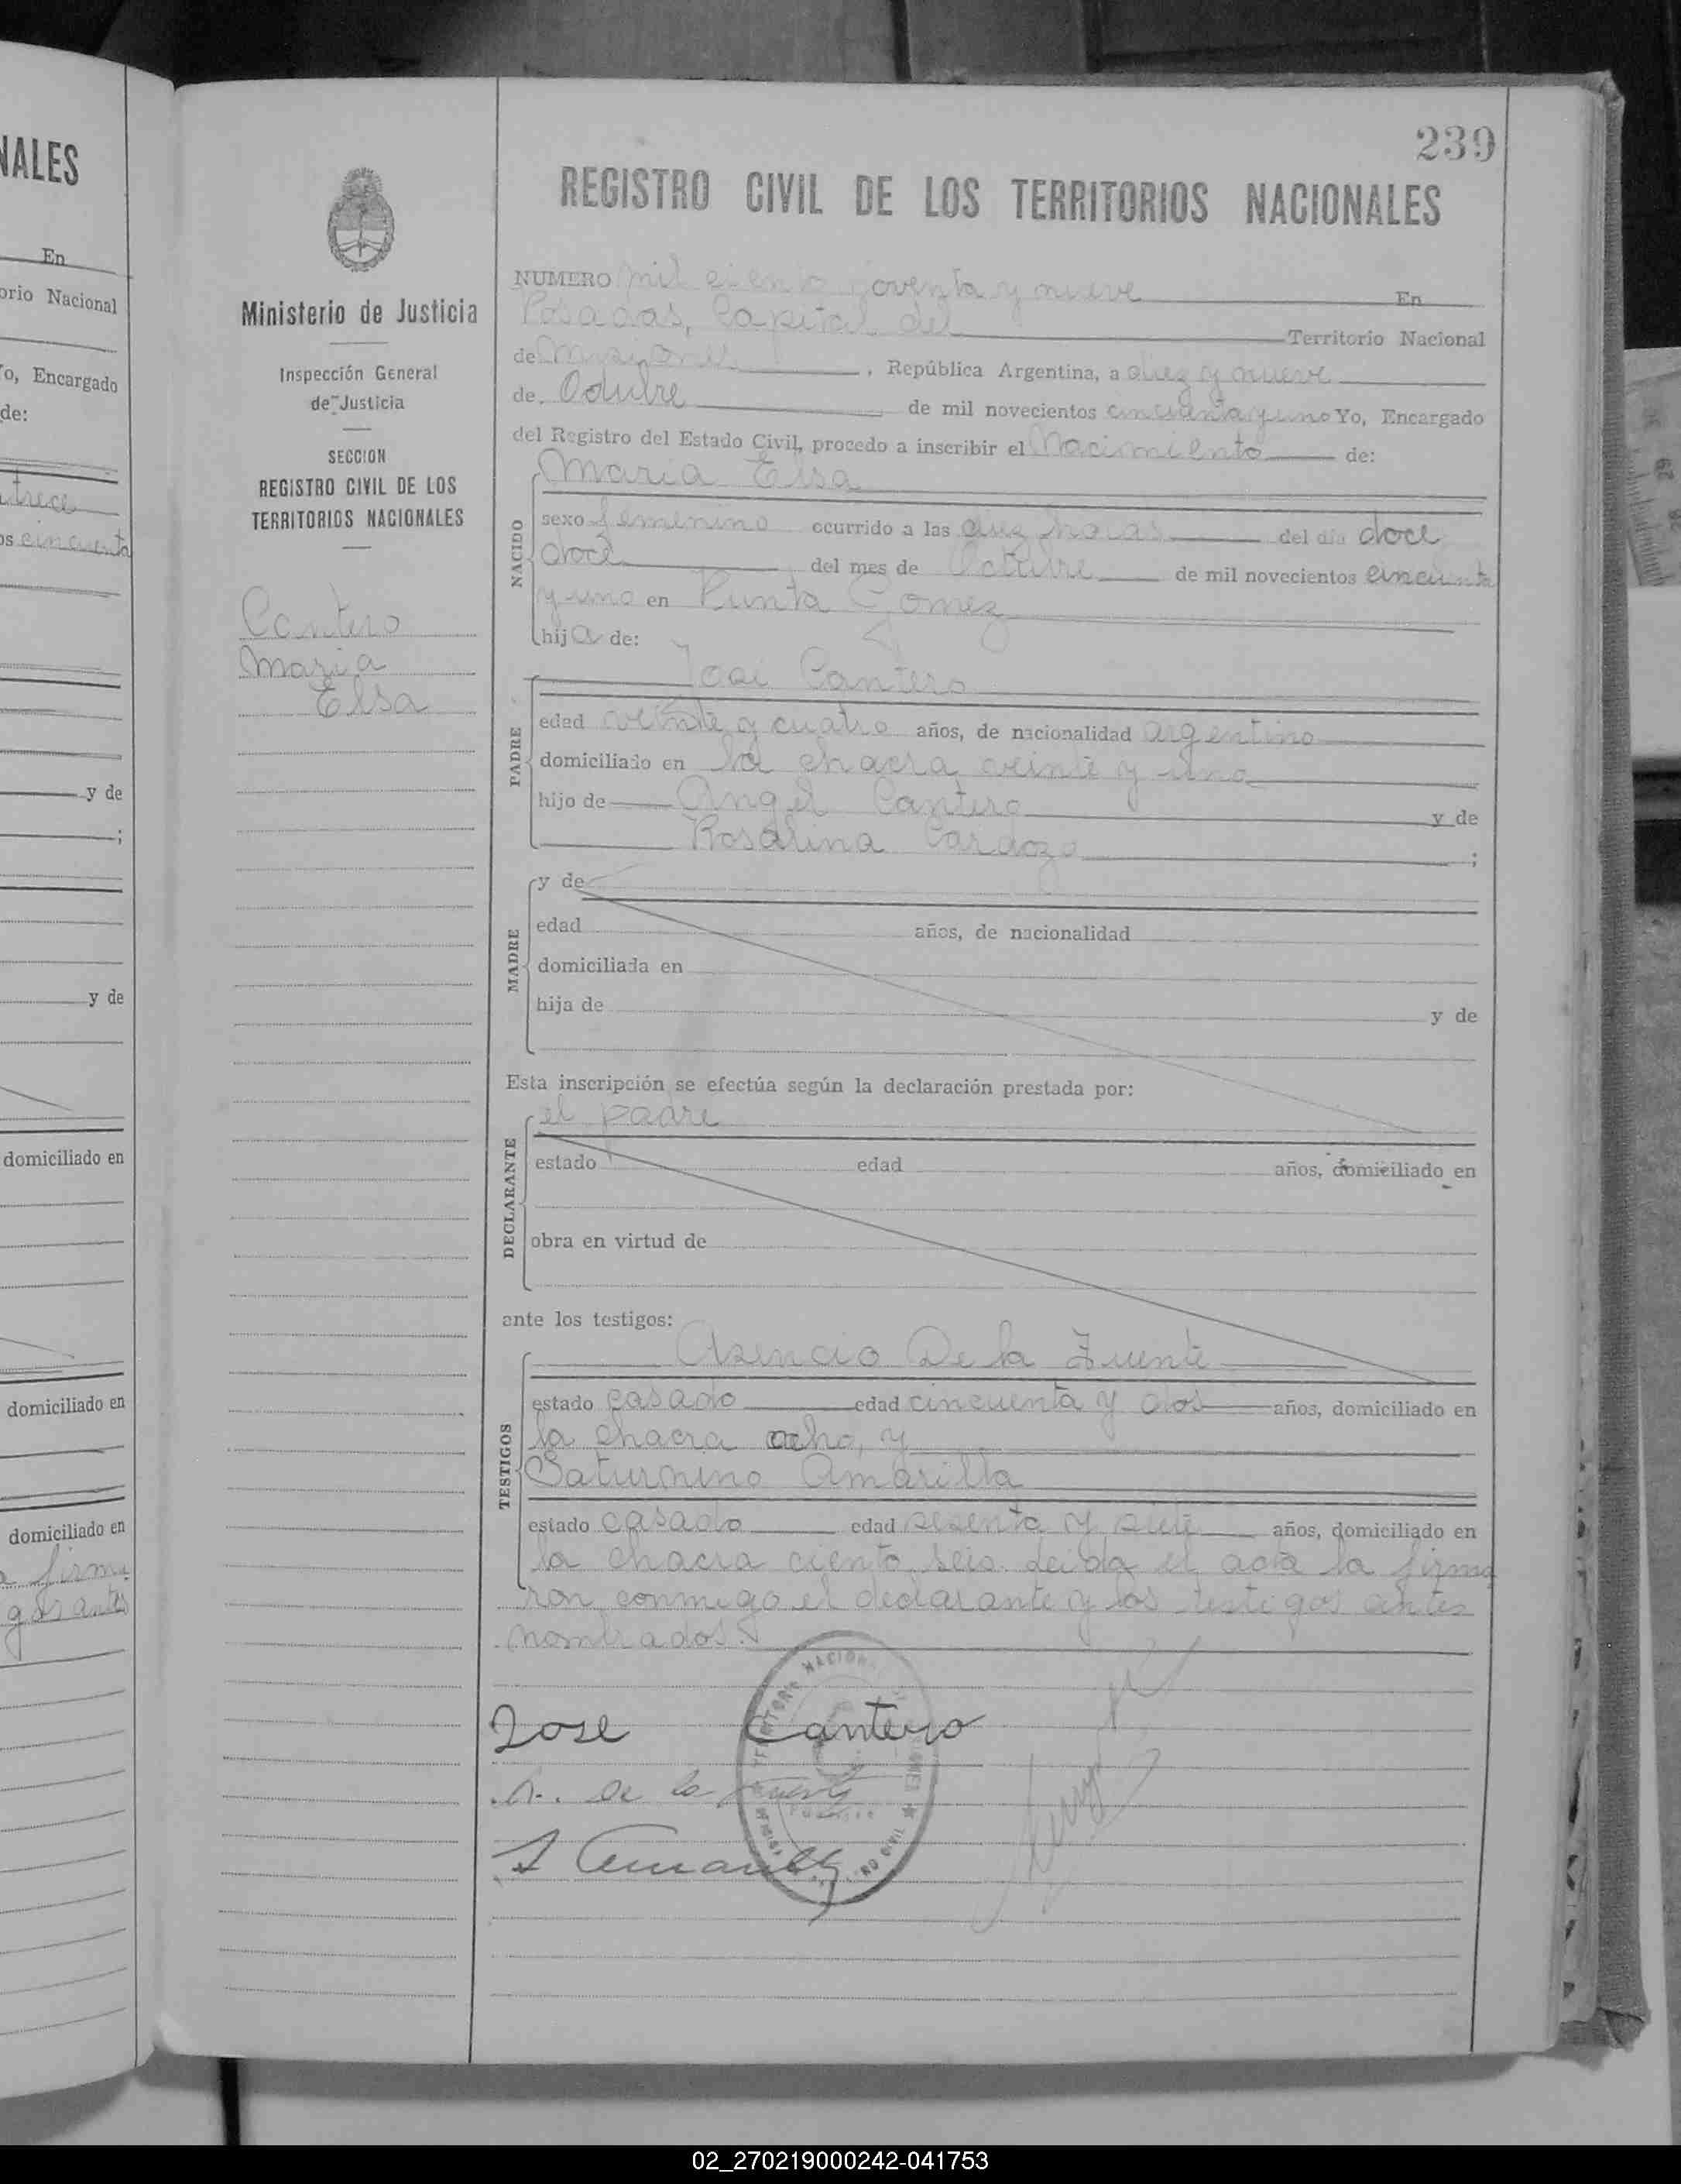 NALES
En
orio Nacional
o, Encargado
de:
trece
os cincuenta
y de
;
y de
domiciliado en
domiciliado en
domiciliado en
a firma
gos antes
Ministerio de Justicia
Inspección General
de Justicia
SECCION
REGISTRO CIVIL DE LOS
TERRITORIOS NACIONALES
Cantero
Maria
Elsa
239
REGISTRO CIVIL DE LOS TERRITORIOS NACIONALES
NUMERO mil ciento noventa y nueve En
Posadas, Capital del Territorio Nacional
de Misiones, República Argentina, a diez y nueve
de Octubre de mil novecientos cincuenta y uno Yo, Encargado
del Registro del Estado Civil, procedo a inscribir el Nacimiento de:
Maria Elsa
NACIDO
sexo femenino ocurrido a las diez horas del día doce
doce del mes de Octubre de mil novecientos cincuenta
y uno en Punta Gomez
hija de:
José Cantero
PADRE
edad veinte y cuatro años, de nacionalidad argentino
domiciliado en la chacra veinte y uno
hijo de Angel Cantero y de
Rosalina Cardozo ;
MADRE
y de
edad años, de nacionalidad
domiciliada en
hija de y de
Esta inscripción se efectúa según la declaración prestada por:
el padre
DECLARANTE
estado edad años, domiciliado en
obra en virtud de
ante los testigos:
Asencio De la Fuente
TESTIGOS
estado casado edad cincuenta y dos años, domiciliado en
la chacra ocho, y
Saturnino Amarilla
estado casado edad sesenta y siete años, domiciliado en
la chacra ciento seis. Leida el acta la firma
ron conmigo el declarante y los testigos antes
nombrados.
Jose Cantero
A. de la Fuente
S Amarilla
02_270219000242-041753